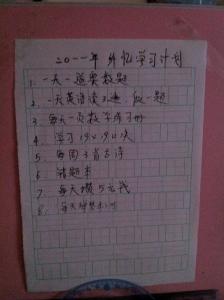 二〇一一年 外忆学习计划
1. 一天一道奥数题
2. 一天英语读3遍，做一题
3. 每天一页数学练习册
4. 学习19×19口决
5. 每周3首古诗
6. 错题本
7. 每天攒5元钱
8. 每天